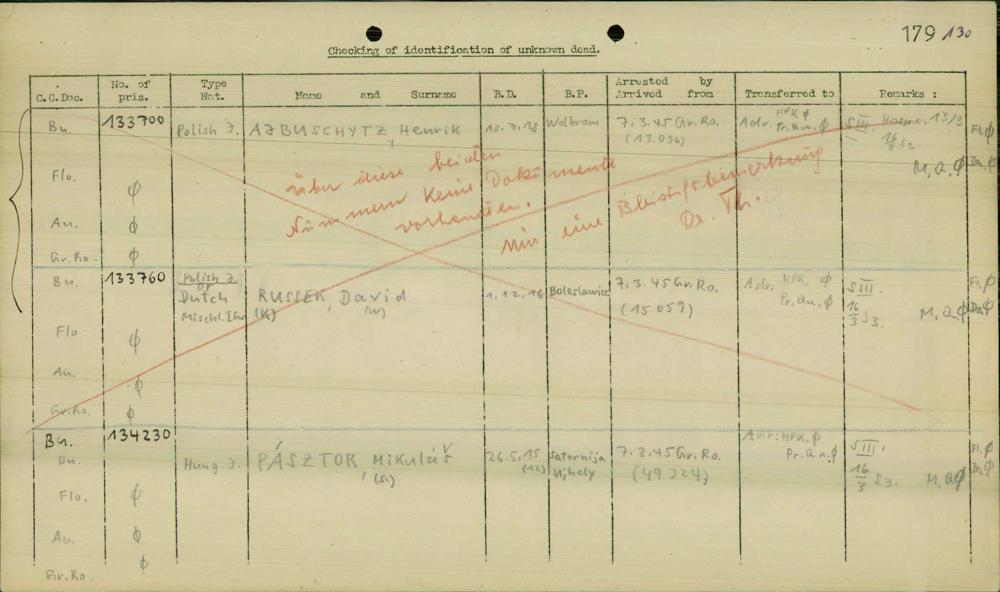 179 130
Checking of identification of unknown dead.
C.C.Doc. No. of pris. Type Nat. Name and Surname B.D. B.P. Arrested by Arrived from Transferred to Remarks :
Bu. 133700 Polish J. AJBUSCHYTZ Henrik 10.7.18 Wolbrom 7.3.45 Gr.Ro. (13.036) Adr. HPK φ Pr.a.n. φ SIII. 13/3. 16/3 S3. Fl. φ
M.a. φ Da. φ
Flo. φ
Au. φ
Gr.Ro. φ
über diese beiden
Nummern keine Dokumente
vorhanden.
Nur eine Bleistiftbemerkung
Dr. Th.
Bu. 133760 Polish J. or Dutch Mischl. I Gr. RUSSEK, David (K) (w) 1.12.16 Boleslawiec 7.3.45 Gr.Ro. (15059) Adr. HPK. φ Pr.a.n. φ SIII. 16/3 S3. M.a. φ Fl. φ Da. φ
Flo. φ
Au. φ
Gr.Ro. φ
Bu. 134230
Bu. Hung. J. PÁSZTOR, Mikuláš (s.) 26.5.15 (12) Satornija Ujhely 7.3.45 Gr.Ro. (49324) Adr: HPK. φ Pr.a.n. φ SIII, 16/3 S3. M.a. φ Fl. φ Da. φ
Flo. φ
Au. φ
Gr.Ro. φ